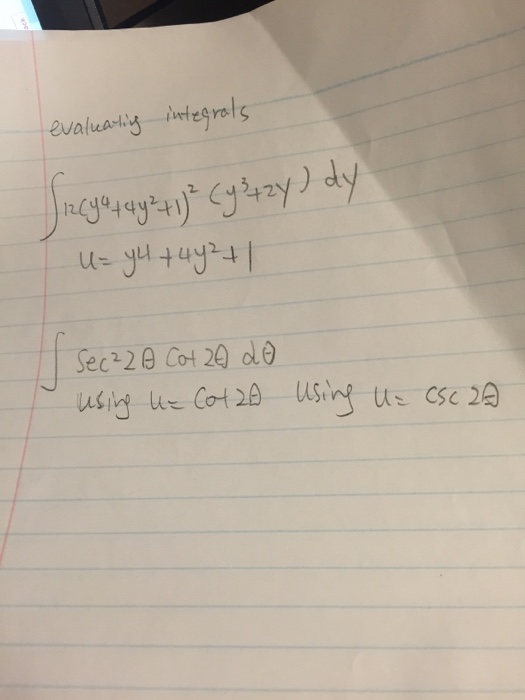 evaluating integrals
∫12(y⁴+4y²+1)² (y³+2y) dy
u= y4 +4y²+1
∫ Sec²2θ Cot 2θ dθ
using u= Cot 2θ Using u= csc 2θ